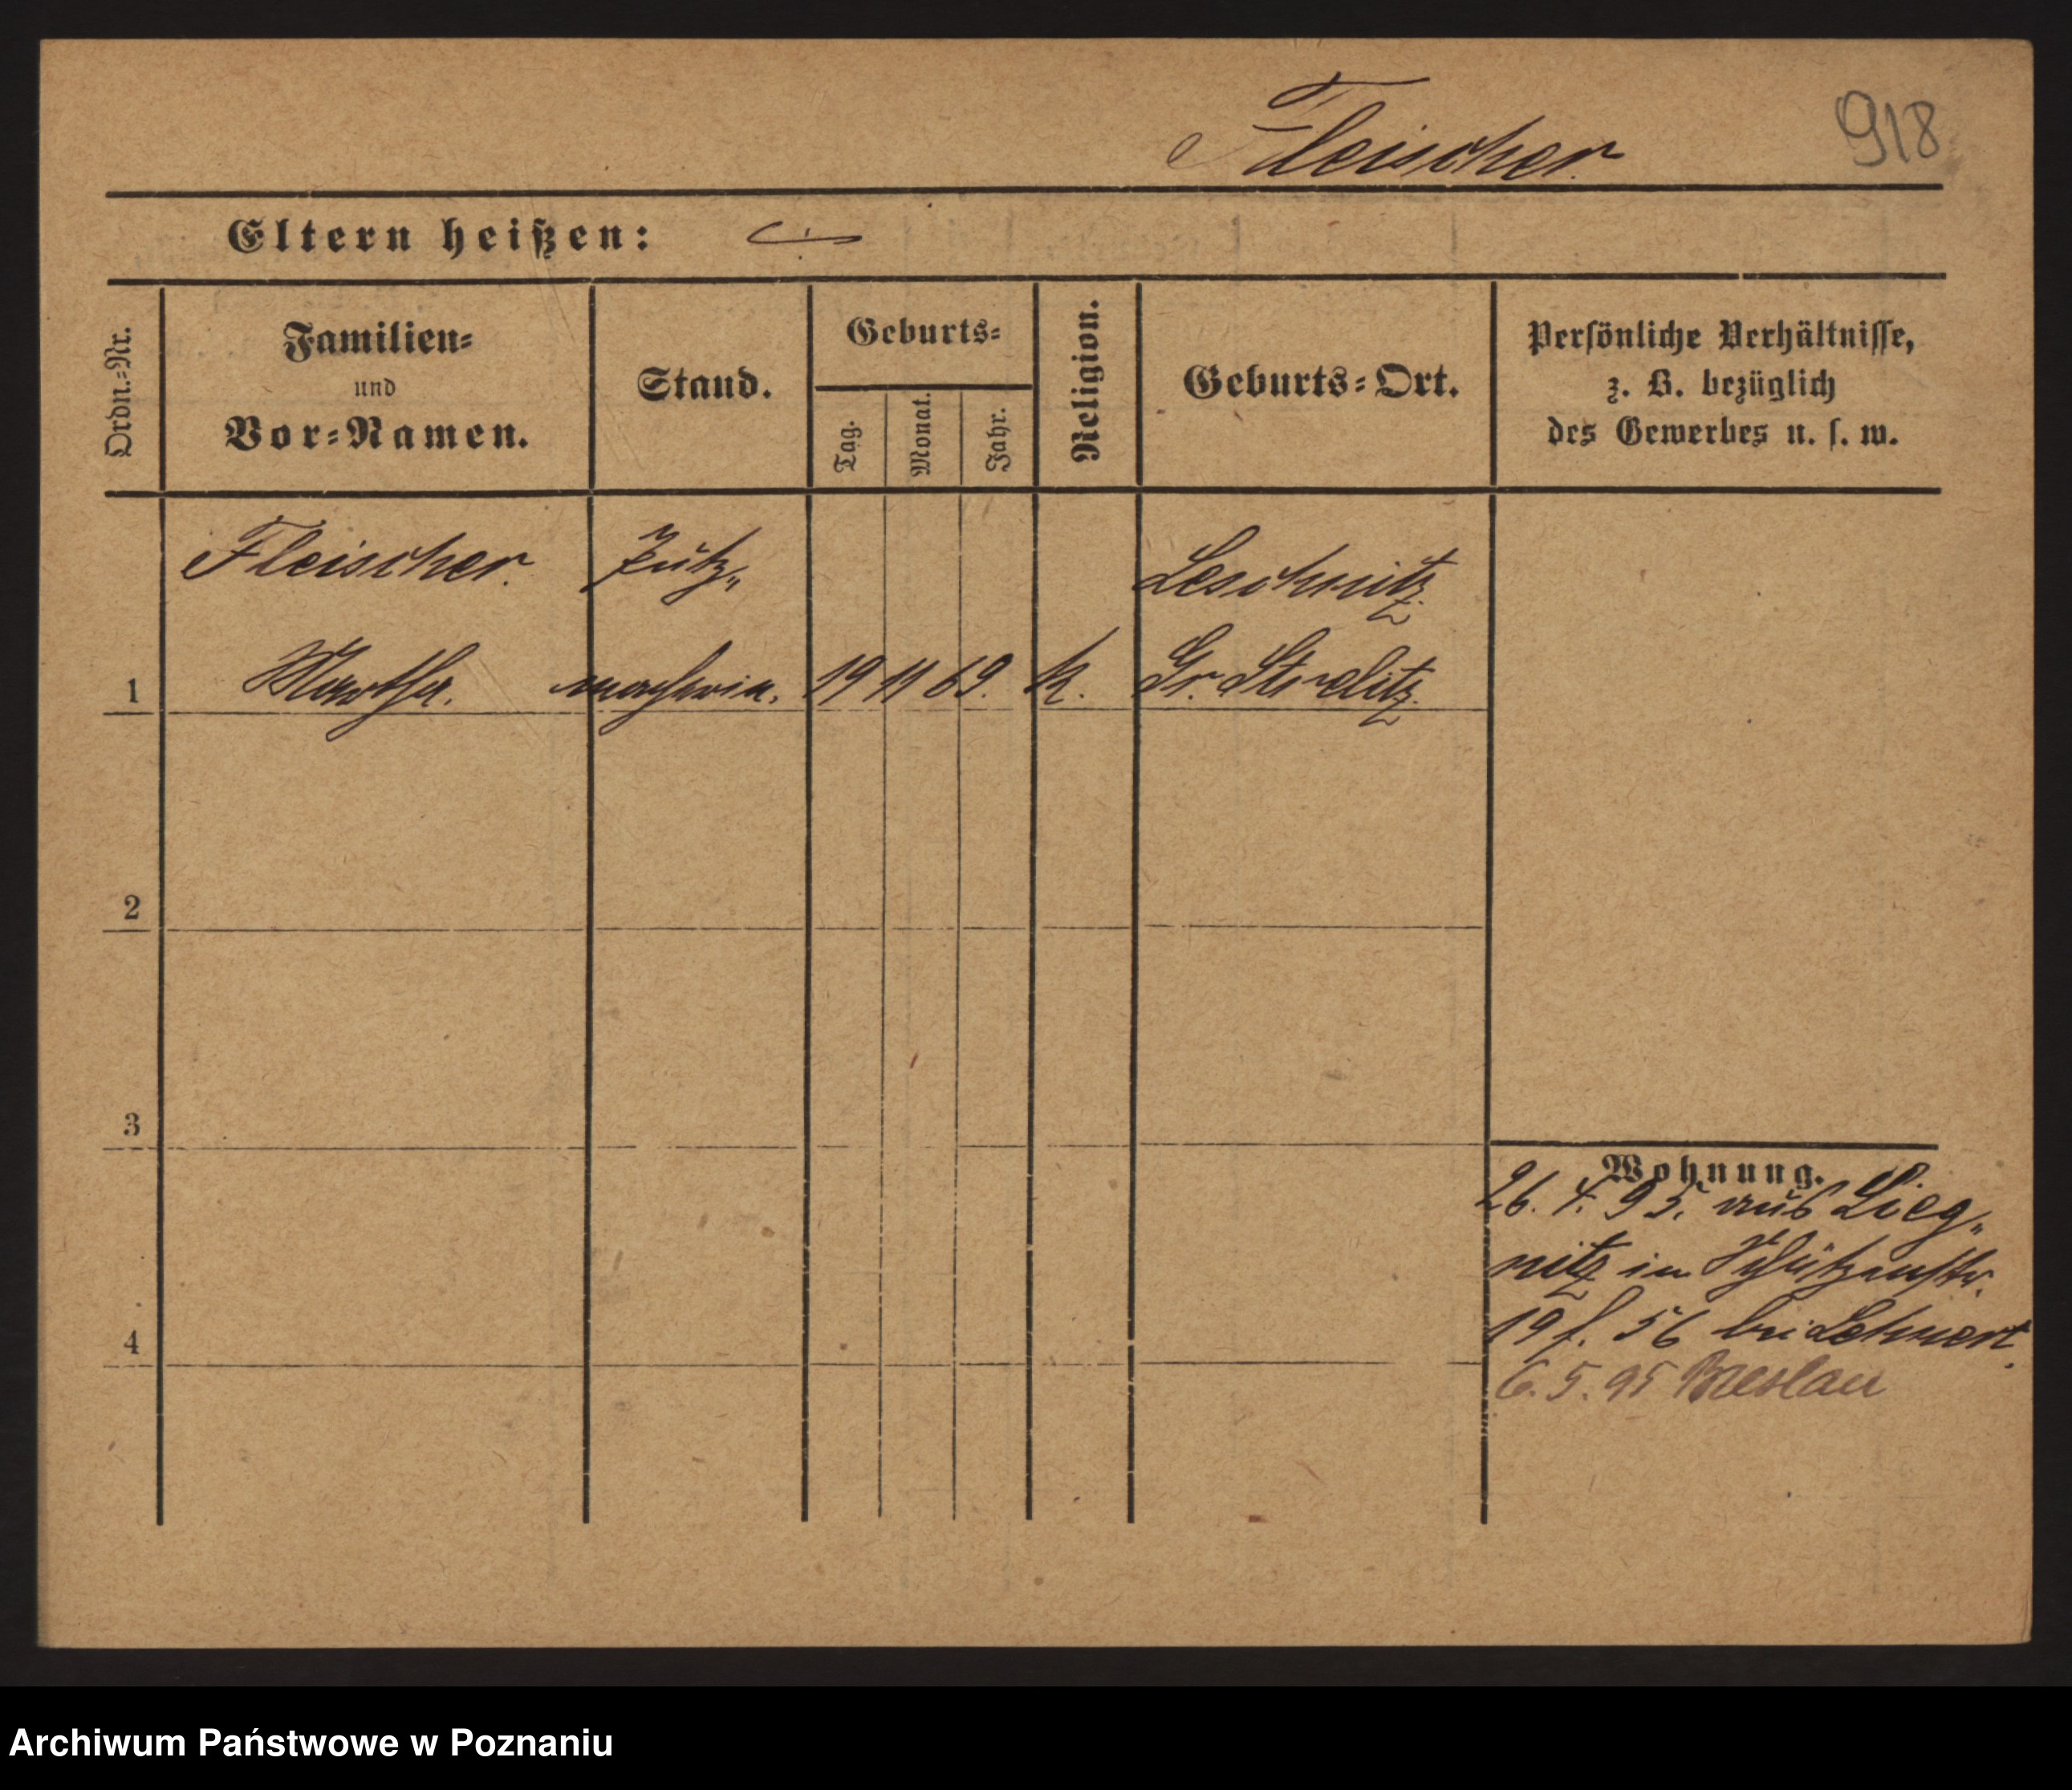 Fleischer
918
Eltern heißen:
Ordn.=Nr.
Familien=
und
Vor=Namen.
Stand.
Geburts=
Tag.
Monat.
Jahr.
Religion.
Geburts=Ort.
Persönliche Verhältnisse,
z. B. bezüglich
des Gewerbes u. s. w.
Fleischer. Putz„ Leschnitz
1 Martha. macherin. 19 11 69. k. Gr. Strelitz
2
3
4
Wohnung.
26. 4. 95. aus Lieg„
nitz in Schützenstr.
19 f. 56 bei Lehnert.
6. 5. 95 Breslau
Archiwum Państwowe w Poznaniu